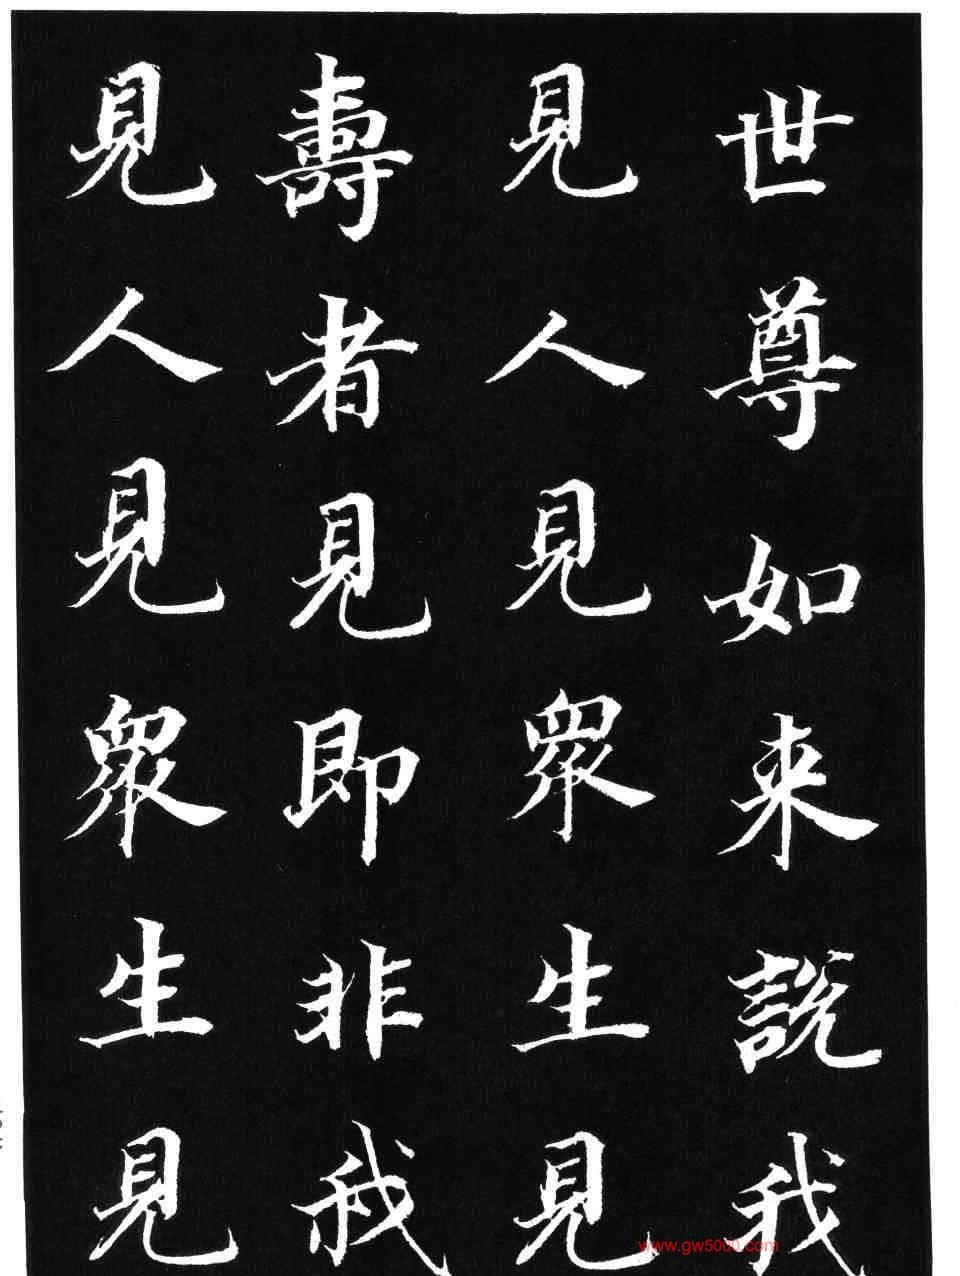 世尊如来說我
見人見眾生見
壽者見即非我
見人見眾生見
www.gw5000.com